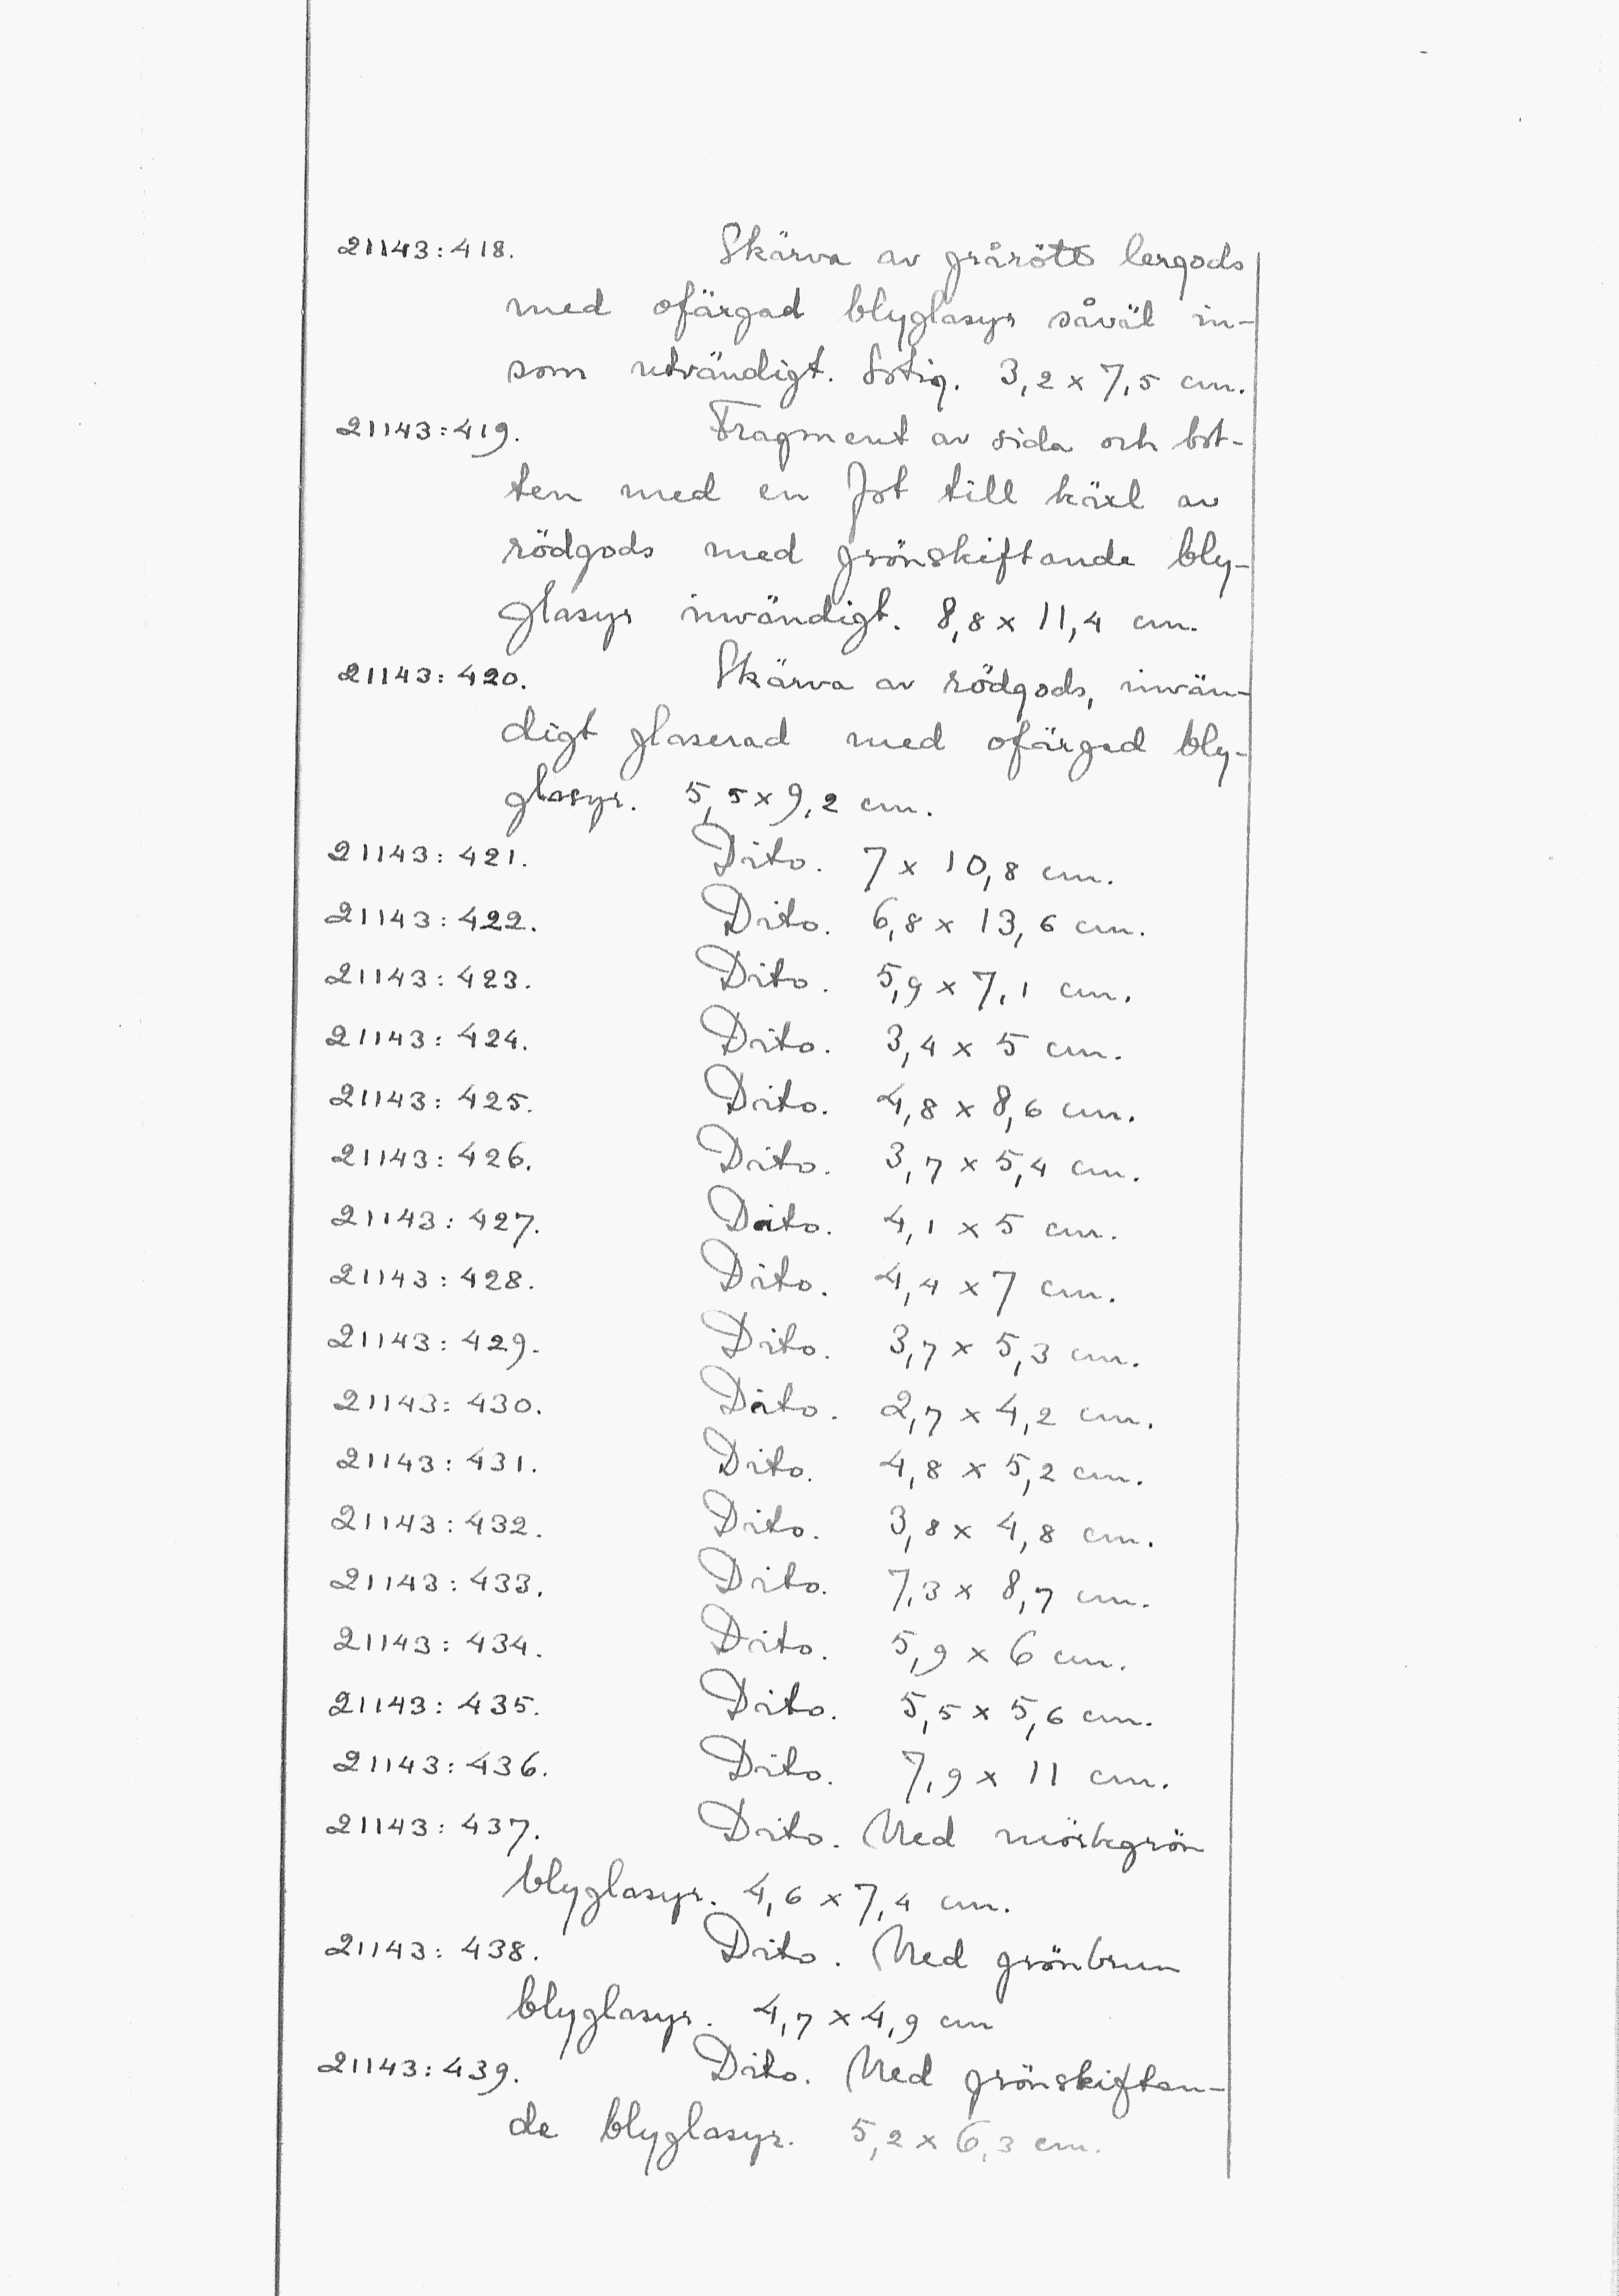 21143:418. Skärva av grårött lergods
med ofärgad blyglasyr såväl in-
som utvändigt. Sotig. 3,2 x 7,5 cm.
21143:419. Fragment av sida och bot-
ten med en fot till kärl av
rödgods med grönskiftande bly-
glasyr invändigt. 8,8 x 11,4 cm.
21143:420. Skärva av rödgods, invän-
digt glaserad med ofärgad bly-
glasyr. 5,5 x 9,2 cm.
21143:421. Dito. 7 x 10,8 cm.
21143:422. Dito. 6,8 x 13,6 cm.
21143:423. Dito. 5,9 x 7,1 cm.
21143:424. Dito. 3,4 x 5 cm.
21143:425. Dito. 4,8 x 8,6 cm.
21143:426. Dito. 3,7 x 5,4 cm.
21143:427. Dito. 4,1 x 5 cm.
21143:428. Dito. 4,4 x 7 cm.
21143:429. Dito. 3,7 x 5,3 cm.
21143:430. Dito. 2,7 x 4,2 cm.
21143:431. Dito. 4,8 x 5,2 cm.
21143:432. Dito. 3,8 x 4,8 cm.
21143:433. Dito. 7,3 x 8,7 cm.
21143:434. Dito. 5,9 x 6 cm.
21143:435. Dito. 5,5 x 5,6 cm.
21143:436. Dito. 7,9 x 11 cm.
21143:437. Dito. Med mörkgrön
blyglasyr. 4,6 x 7,4 cm.
21143:438. Dito. Med grönbrun
blyglasyr. 4,7 x 4,9 cm
21143:439. Dito. Med grönskiftan-
de blyglasyr. 5,2 x 6,3 cm.